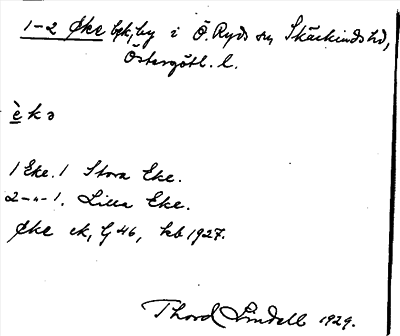 1-2 Eke by, by i Ö. Ryds sn Skärkinds hd,
Östergötl. l.
èkə
1 Eke. 1 Stora Eke.
2 -"- 1. Lilla Eke.
Eke ek, G 46, kb 1927.
Thord Lindell 1929.